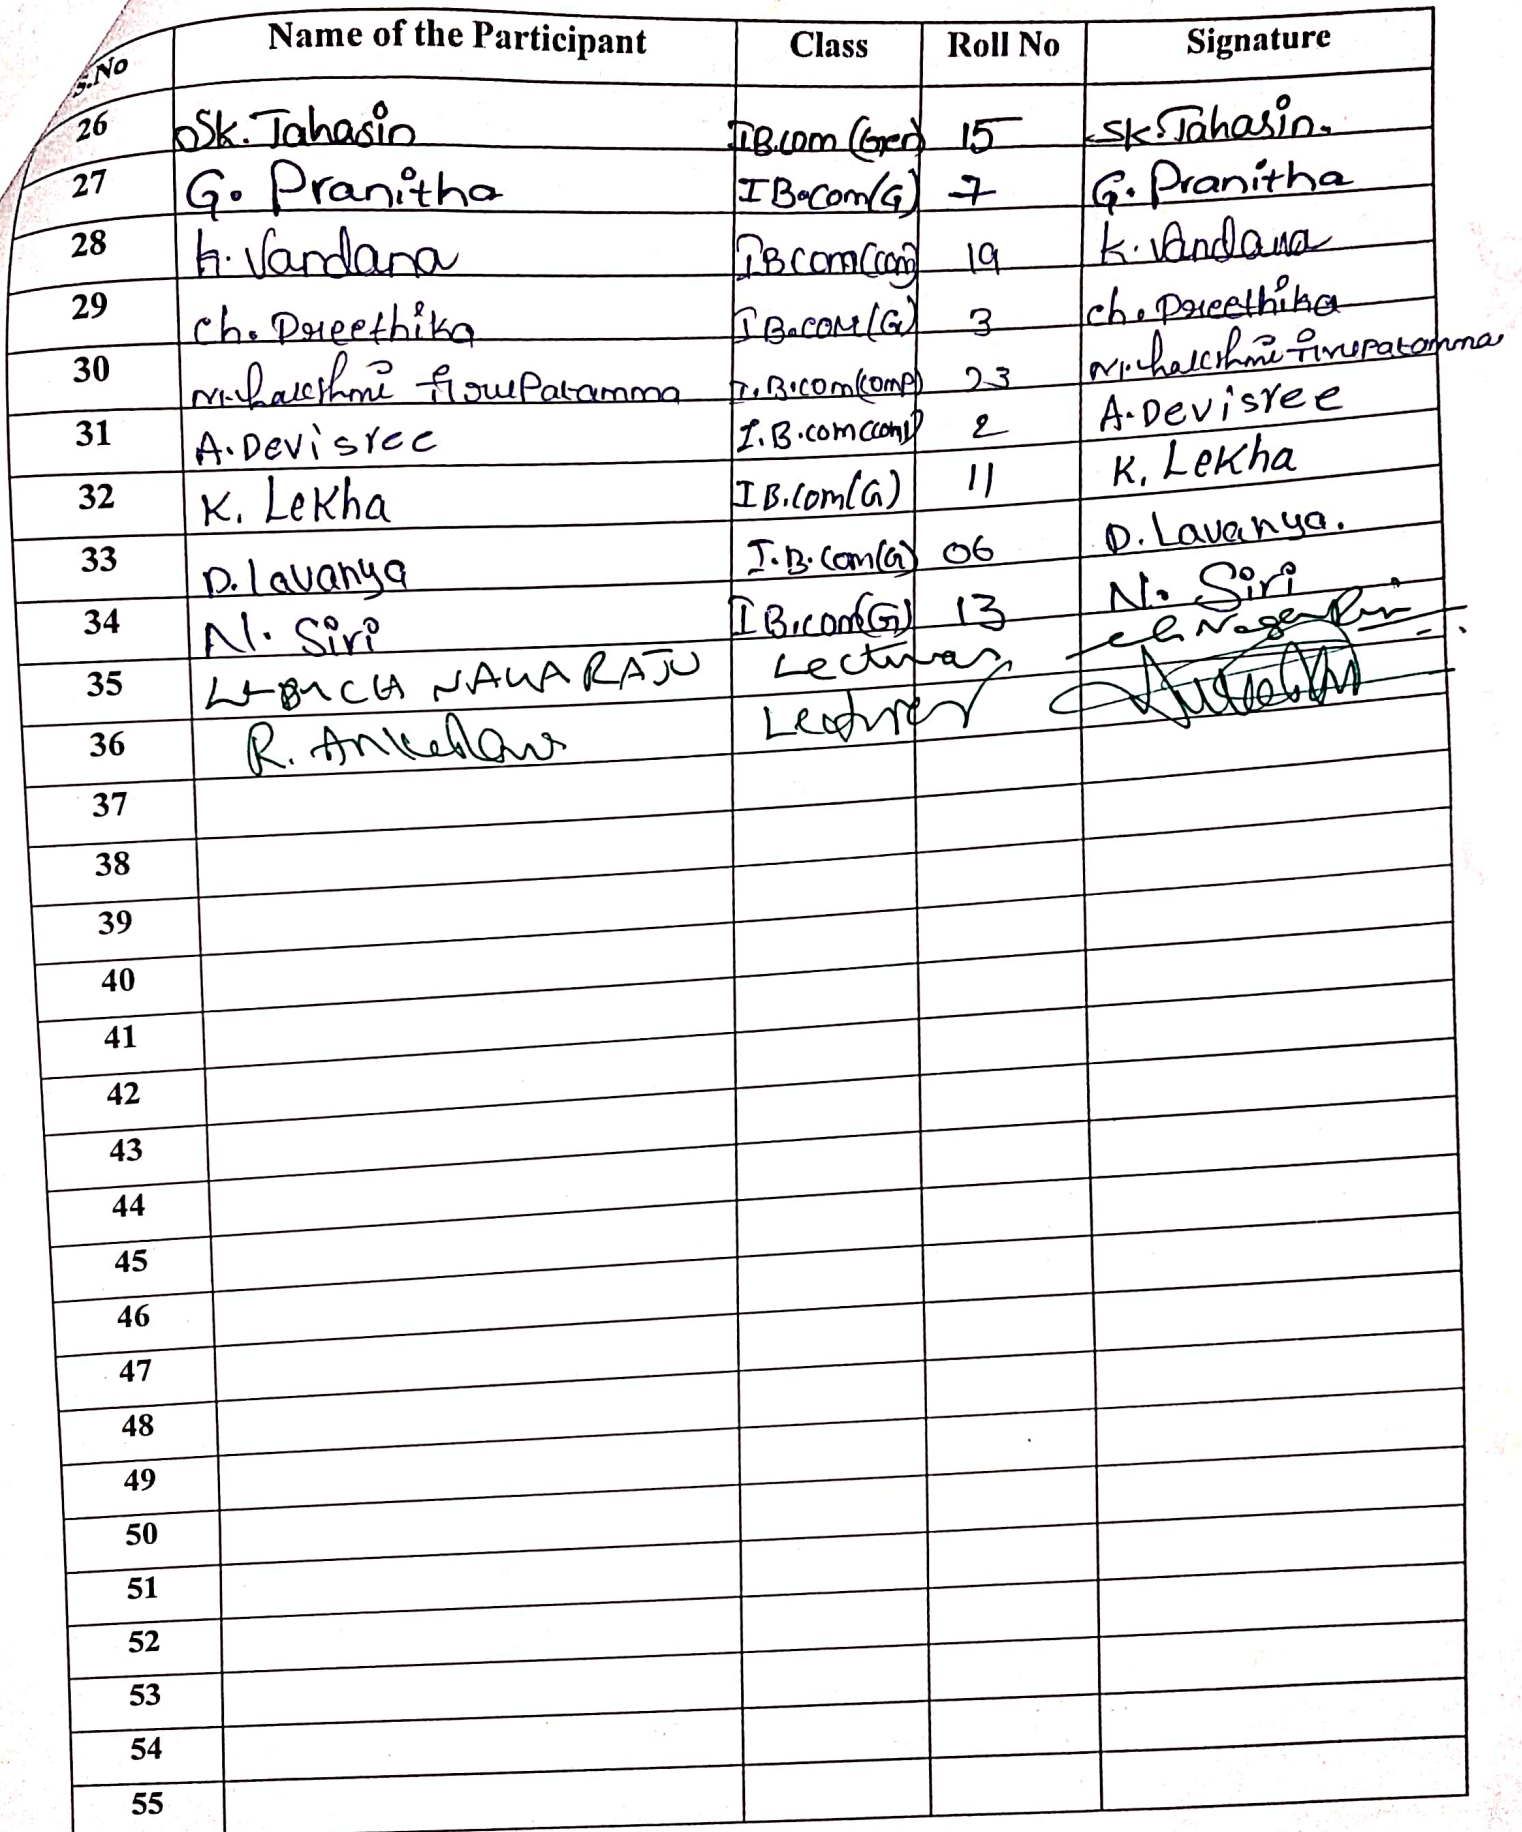 S.No Name of the Participant Class Roll No Signature
26 Sk. Tahasin I B.com (Gen) 15 Sk. Tahasin.
27 G. Pranitha I B.Com(G) 7 G. Pranitha
28 K. Vandana I B com(com) 19 K. Vandana
29 Ch. Preethika I B.com(G) 3 Ch. Preethika
30 M. Lakshmi Tirupatamma I. B.com(comp) 23 M. Lakshmi Tirupatamma
31 A. Devisree I. B. com(com) 2 A. Devisree
32 K. Lekha I B.Com(G) 11 K. Lekha
33 D. Lavanya I. B. Com(G) 06 D. Lavanya.
34 N. Siri I B.com(G) 13 N. Siri
35 RAJU Lecturer
36 R. Lecturer
37
38
39
40
41
42
43
44
45
46
47
48
49
50
51
52
53
54
55